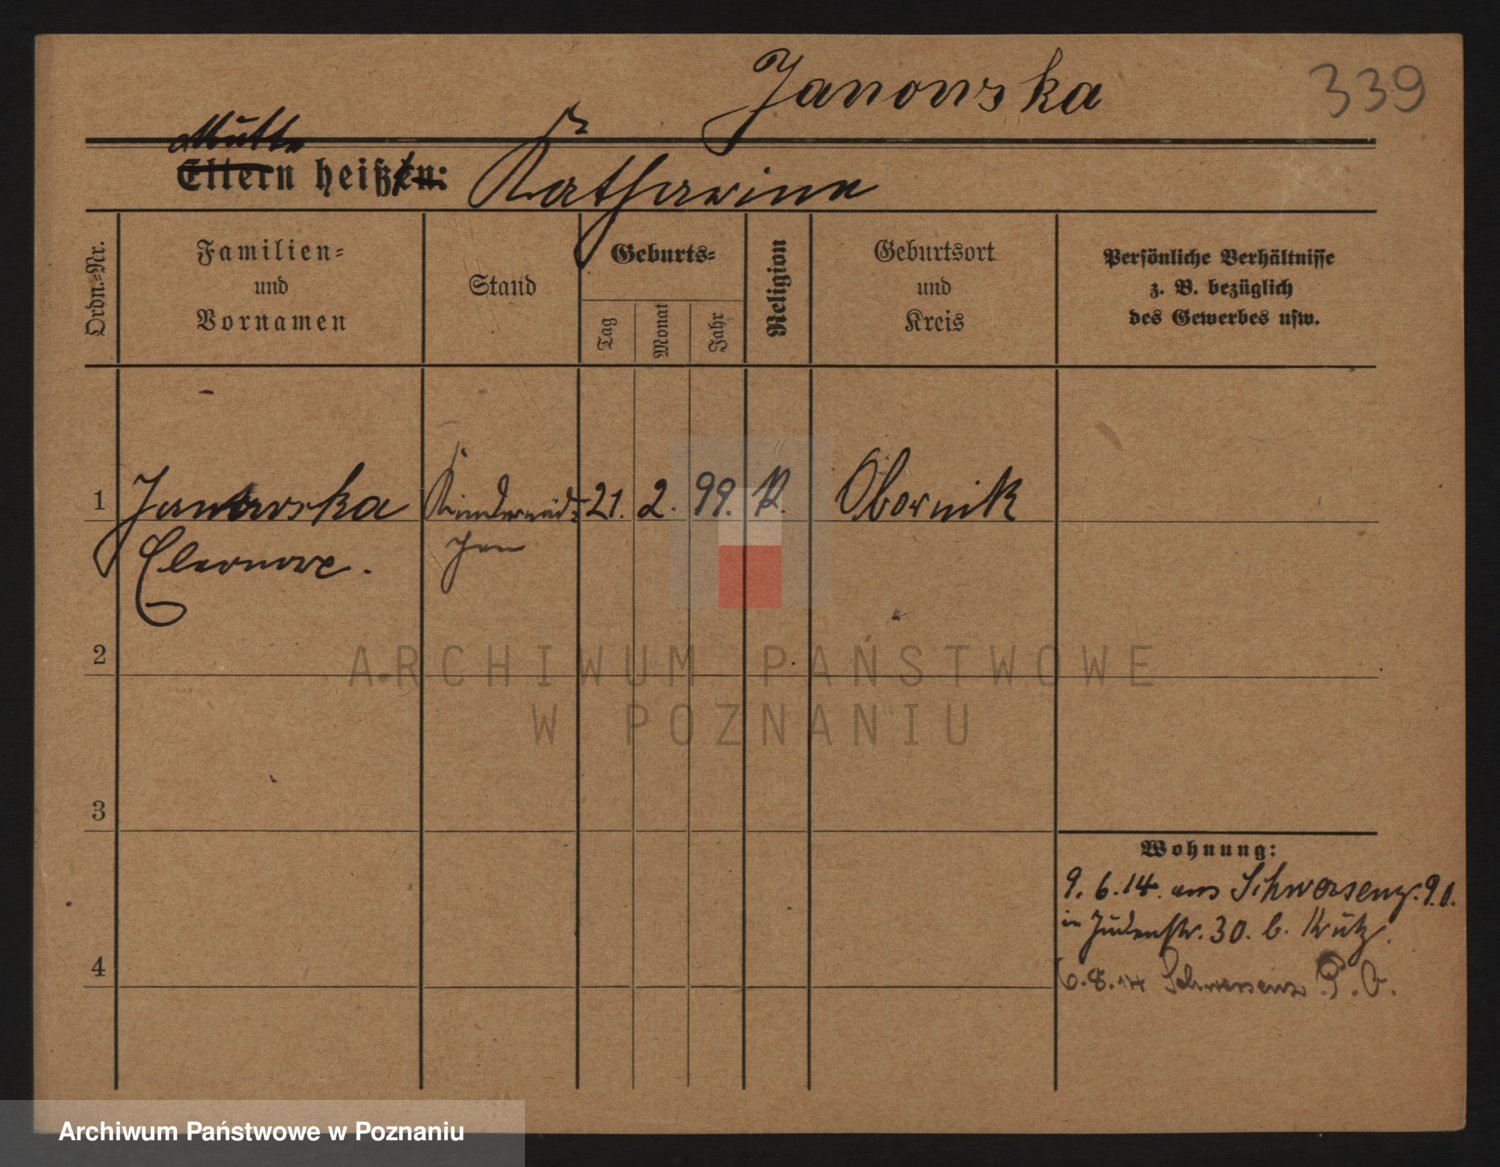 Janowska
339
Mutter
Eltern heißen: Katharina
Ordn.-Nr.
Familien-
und
Vornamen
Stand
Geburts-
Tag
Monat
Jahr
Religion
Geburtsort
und
Kreis
Persönliche Verhältnisse
z. B. bezüglich
des Gewerbes usw.
1 Janowska Kindermäd- 21. 2. 99. K. Obornik
Eleonore. chen
2
3
4
Wohnung:
9. 6. 14. aus Schwersenz. P. O.
in Judenstr. 30. b. Krutz.
6. 8. 14 Schwersenz P. O.
ARCHIWUM PAŃSTWOWE
W POZNANIU
Archiwum Państwowe w Poznaniu